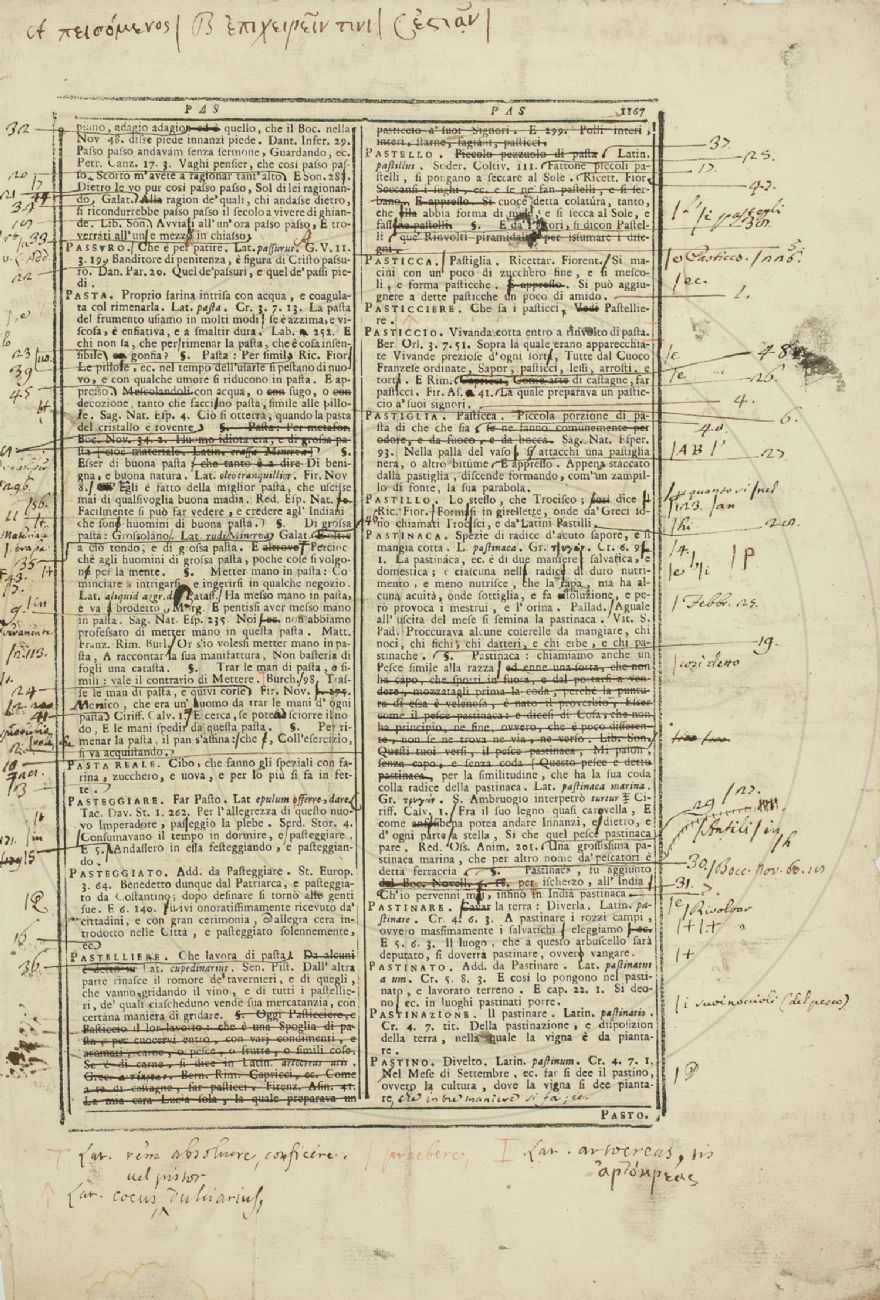 A πεισόμενος | B ἐπιχειρεῖν τινι |
PAS PAS 1167
piano, adagio adagio ed è quello, che il Boc. nella
Nov 48. disse piede innanzi piede. Dant. Infer. 29.
Passo passo andavam senza sermone, Guardando, ec.
Petr. Canz. 17. 3. Vaghi pensier, che così passo pas-
so. Scorto m'avete a ragionar tant'alto E Son. 28.
Dietro le vo pur così passo passo, Sol di lei ragionan-
do Galat. Alla ragion de' quali, chi andasse dietro,
si ricondurrebbe passo passo il secolo a vivere di ghian-
de. Lib. Son. Avviati all' un' ora passo passo, E tro-
verrati all' un' e mezzo in chiasso
PASSURO. Che è per patire. Lat. passurus. G. V. 11.
3. 19. Banditore di penitenza, è figura di Cristo passu-
ro. Dan. Par. 20. Quel de' passuri, e quel de' passi pie-
di.
PASTA. Proprio farina intrisa con acqua, e coagula-
ta col rimenarla. Lat. pasta. Cr. 3. 7. 13. La pasta
del frumento usiamo in molti modi se è azzima, e vi-
scosa, è enfiativa, e a smaltir dura. Lab. 252. E
chi non sa, che per rimenar la pasta, che è cosa insen-
sibile gonfia? §. Pasta: Per simil. Ric. Fior.
Le pistole, ec. nel tempo dell' usarle si pestano di nuo-
vo, e con qualche umore si riducono in pasta. E ap-
presso Mescolandoli con acqua, o con sugo, o con
decozione, tanto che faccino pasta, simile alle pillo-
le. Sag. Nat. Esp. 4. Ciò si otterrà, quando la pasta
del cristallo è rovente §. Pasta: Per metafor.
Boc. Nov. 34. 2. Huomo idiota era, e di grossa pa-
sta cioè materiale. Latin. crassa Minerva §.
Esser di buona pasta: che tanto è a dire Di beni-
gna, e buona natura. Lat. oleo tranquillior. Fir. Nov
8. Egli è fatto della miglior pasta, che uscisse
mai di qualsivoglia buona madia. Red. Esp. Nat. fo.
Facilmente si può far vedere, e credere agl' Indiani
che sono huomini di buona pasta. §. Di grossa
pasta: Grossolano. Lat. rudi Minerva Galat. E altro
a ciò tondo, e di grossa pasta E altrove Percioc-
chè agli huomini di grossa pasta, poche cose si volgo-
no per la mente. §. Metter mano in pasta: Co
minciare a intrigarsi e ingerirsi in qualche negozio.
Lat. aliquid aggr.di Pataff. Ha messo mano in pasta,
e va brodetto Morg. E pentissi aver messo mano
in pasta. Sag. Nat. Esp. 235. Noi ec. non abbiamo
professato di metter mano in questa pasta. Matt.
Franz. Rim. Burl. Or s'io volessi metter mano in pa-
sta, A raccontar la sua manifattura, Non basteria di
fogli una catasta. §. Trar le man di pasta, o si-
mili: vale il contrario di Mettere. Burch. 98. Tras-
se le man di pasta, e quivi corse Fir. Nov. f. 275.
Menico, che era un' huomo da trar le mani d' ogni
pasta Ciriff. Calv. 1. E cerca, se potea sciorre il no
do, E le mani spedir da questa pasta. §. Per ri-
menar la pasta, il pan s'affina: che, Coll' esercizio,
si va acquistando.
PASTA REALE. Cibo, che fanno gli speziali con fa-
rina, zucchero, e uova, e per lo più si fa in fet-
te.
PASTEGGIARE. Far Pasto. Lat epulum offerre, dare.
Tac. Dav. St. 1. 262. Per l'allegrezza di questo nuo-
vo Imperadore, pasteggiò la plebe. Serd. Stor. 4.
Consumavano il tempo in dormire, e pasteggiare.
E 5. Andassero in essa festeggiando, e pasteggian-
do.
PASTEGGIATO. Add. da Pasteggiare. St. Europ.
3. 64. Benedetto dunque dal Patriarca, e pasteggia-
to da Costantino; dopo desinare si tornò alle genti
sue. E 6. 140. Quivi onoratissimamente ricevuto da'
cittadini, e con gran cerimonia, o allegra cera in-
trodotto nelle Città, e pasteggiato solennemente,
ec.
PASTELLIERE. Che lavora di pasta. Da alcuni
è detto in Lat. cupedinarius. Sen. Pist. Dall' altra
parte rinasce il romore de' tavernieri, e di quegli,
che vanno gridando il vino, e di tutti i pastellie-
ri, de' quali ciascheduno vende sua mercatanzia, con
certana maniera di gridare. §. Oggi Pasticciere, e
Pasticcio il lor lavoro: che è una Spoglia di pa-
sta, per cuocervi entro, con varj condimenti, e
aromati, carne, o pesce, o frutte, o simili cose.
Se è di carne, si dice in Latin. artocreas atis.
Bern. Rim. Capricci, ec. Come
a te di castagne, far pasticci. Firenz. Asin. 41.
La mia cara Lucia sola, la quale preparava un
pasticcio a' suoi Signori. E 299. Polli interi,
interi, starne, fagiani, pasticci.
PASTELLO. Piccolo pezzuolo di pasta Latin.
pastillus. Soder. Coltiv. 111. Fattone piccoli pa-
stelli, si pongano a seccare al Sole. Ricett. Fior.
Seccansi i sughi, ec. e se ne fan pastelli, e si ser-
bano. E appresso. Si cuoce detta colatura, tanto,
che ella abbia forma di mele, e si secca al Sole, e
fassine pastelli §. E da' Pittori, si dicon Pastel-
li que' Rinvolti piramidali per isfumare i dise-
gni.
PASTICCA. Pastiglia. Ricettar. Fiorent. Si ma-
cini con un poco di zucchero fine, e si mesco-
li, e forma pasticche. E appresso. Si può aggiu-
gnere a dette pasticche un poco di amido.
PASTICCIERE. Che fa i pasticci, Vedi Pastellie-
re.
PASTICCIO. Vivanda cotta entro a rinvolto di pasta.
Ber. Orl. 3. 7. 51. Sopra la quale erano apparecchia-
te Vivande preziose d'ogni sorta, Tutte dal Cuoco
Franzese ordinate, Sapor, pasticci, lessi, arrosti, e
torte. E Rim. Capricci, Come arte di castagne, far
pasticci. Fir. As. 41. La quale preparava un pastic-
cio a' suoi signori.
PASTIGLIA. Pasticca. Piccola porzione di pa-
sta di che che sia se ne fanno comunemente per
odore, e da fuoco, e da bocca. Sag. Nat. Esper.
93. Nella palla del vaso s' attacchi una pastiglia
nera, o altro bitume E appresso. Appena staccato
dalla pastiglia, discende formando, com' un zampil-
lo di fonte, la sua parabola.
PASTILLO. Lo stesso, che Trocisco; così dice il
Ric. Fior. Formisi in girellette, onde da' Greci so-
no chiamati Trocisci, e da' Latini Pastilli
PASTINACA. Spezie di radice d' acuto sapore, e si
mangia cotta. L. pastinaca. Gr. τρυγών. Cr. 6. 91.
1. La pastinaca, ec. è di due maniere salvatica, e
domestica; e ciascuna nella radice di duro nutri-
mento, e meno nutrisce, che la rapa, ma ha al-
cuna acuità, onde sottiglia, e fa soluzione, e pe-
rò provoca i mestrui, e l' orina. Pallad. Aguale
all' uscita del mese si semina la pastinaca. Vit. S.
Pad. Proccurava alcune coserelle da mangiare, chi
noci, chi fichi, chi datteri, e chi erbe, e chi pa-
stinache. §. Pastinaca: chiamasi anche un
Pesce simile alla razza ed enne una sorta, che non
ha capo, che sporti in fuora, e dal portarsi a ven-
dere, mozzatagli prima la coda, perchè la puntu-
ra di essa è velenosa, è nato il proverbio, Esser
come il pesce pastinaca: e dicesi di Cosa, che non
ha principio, ne fine, ovvero, che è poco differen-
te, non se ne trova ne via, nè verso. Lib. Son.
Questi tuoi versi, il pesce pastinaca, Mi paion,
senza capo, e senza coda Questo pesce è detto
pastinaca, per la similitudine, che ha la sua coda
colla radice della pastinaca. Lat. pastinaca marina.
Gr. τρυγών. S. Ambruogio interpetrò turtur Ci-
riff. Calv. 1. Fra il suo legno quasi caravella, E
come anfisbena potea andare Innanzi, e dietro, e
d' ogni parte a stella, Sì che quel pesce pastinaca
pare. Red. Oss. Anim. 201. Una grossissima pa-
stinaca marina, che per altro nome da' pescatori è
detta ferraccia §. Pastinaca, fu aggiunto
dal Boc. Novell. per ischerzo, all' India
Ch' io pervenni mai, infino in India pastinaca
PASTINARE. la terra: Diverla. Latin. pa-
stinare. Cr. 4. 6. 3. A pastinare i rozzi campi,
ovvero massimamente i salvatichi eleggiamo ec.
E 5. 6. 3. Il luogo, che a questo arbuscello sarà
deputato, si doverrà pastinare, ovvero vangare.
PASTINATO. Add. da Pastinare. Lat. pastinatus
a um. Cr. 5. 8. 3. E così lo pongono nel pasti-
nato, e lavorato terreno. E cap. 22. 1. Si deo-
no ec. in luoghi pastinati porre.
PASTINAZIONE. Il pastinare. Latin. pastinatio.
Cr. 4. 7. tit. Della pastinazione, e disposizion
della terra, nella quale la vigna è da pianta-
re.
PASTINO. Divelto. Latin. pastinum. Cr. 4. 7. 1.
Nel Mese di Settembre, ec. far si dee il pastino,
ovvero la cultura, dove la vigna si dee pianta-
re, che in tre maniere si fa; ec.
PASTO.
Lat. rem absolvere, conficere. | praebere, I Lat. artocreas, tis
vel pistor ἀρτόκρεας
Lat. cocus dulciarius,
37.
25.
17.
47.
i pastegli
Pasticco.
ec.
1.
48
26.
4.
6.
40.
A B
27
P
Febbr. 25.
19.
così detto
29
30. Bocc. Nov. 60.
31.
32
20
17
21
34
39
22
23
39
45
35
24
10
13
15
36